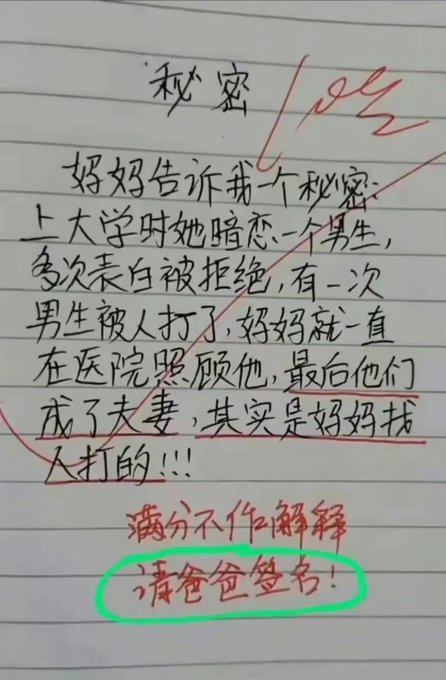 秘密
100
妈妈告诉我一个秘密:
上大学时她暗恋一个男生,
多次表白被拒绝,有一次
男生被人打了,妈妈就一直
在医院照顾他,最后他们
成了夫妻,其实是妈妈找
人打的!!!
满分不作解释
请爸爸签名!